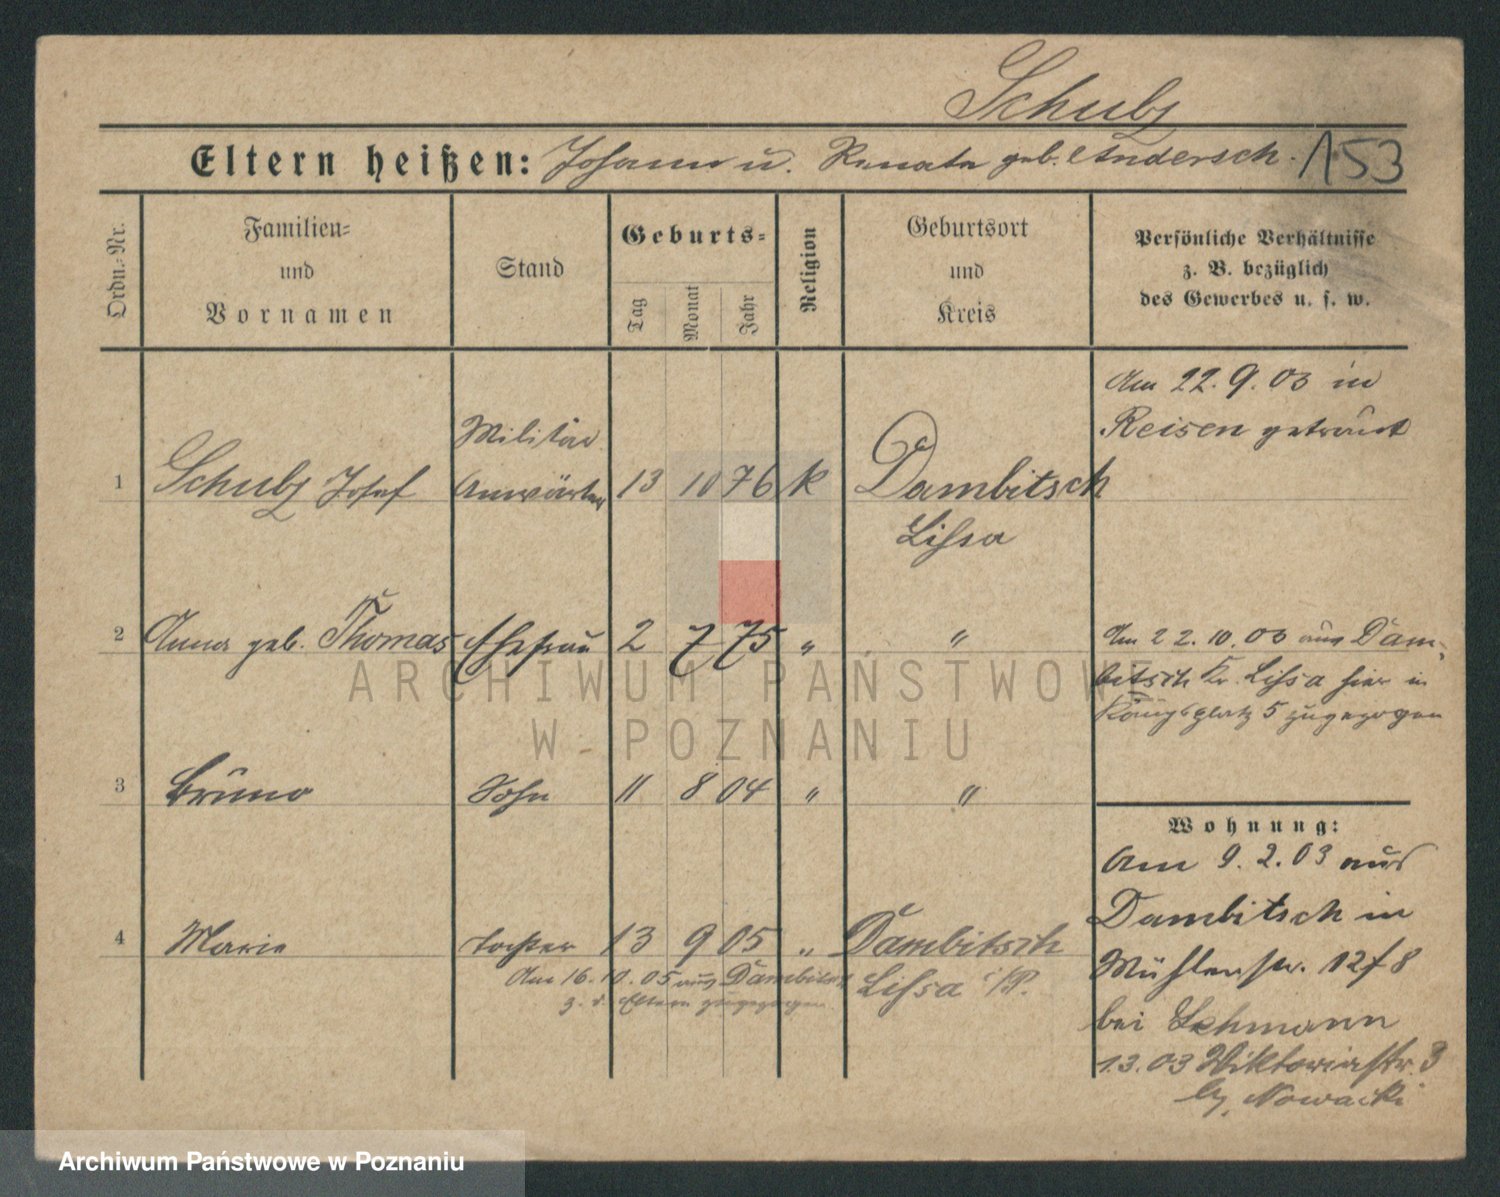 Schubz
Eltern heißen: Johann u. Renate geb. Andersch. 153
Ordn.-Nr.
Familien-
und
Vornamen
Stand
Geburts-
Tag
Monat
Jahr
Religion
Geburtsort
und
Kreis
Persönliche Verhältnisse
z. B. bezüglich
des Gewerbes u. s. w.
Am 22. 9. 03 in
Reisen getraut
Militär
1 Schubz Josef Anwärter 13 10 76 k Dambitsch
Lissa
2 Anna geb. Thomas Ehefrau 2 7 75 " "
Am 22. 10. 03 aus Dam-
bitsch Kr. Lissa hier in
Königsplatz 5 zugezogen
3 Bruno Sohn 11 8 04 " "
Wohnung:
Am 9. 2. 03 aus
Dambitsch in
Mühlenstr. 12 8
bei Lehmann
1.3.03 Viktoriastr. 3
Nowacki
4 Marie Tochter 13 9 05 " Dambitsch
Lissa i/P.
Am 16. 10. 05 aus Dambitsch
z. d. Eltern zugezogen
ARCHIWUM PAŃSTWOWE
W POZNANIU
Archiwum Państwowe w Poznaniu